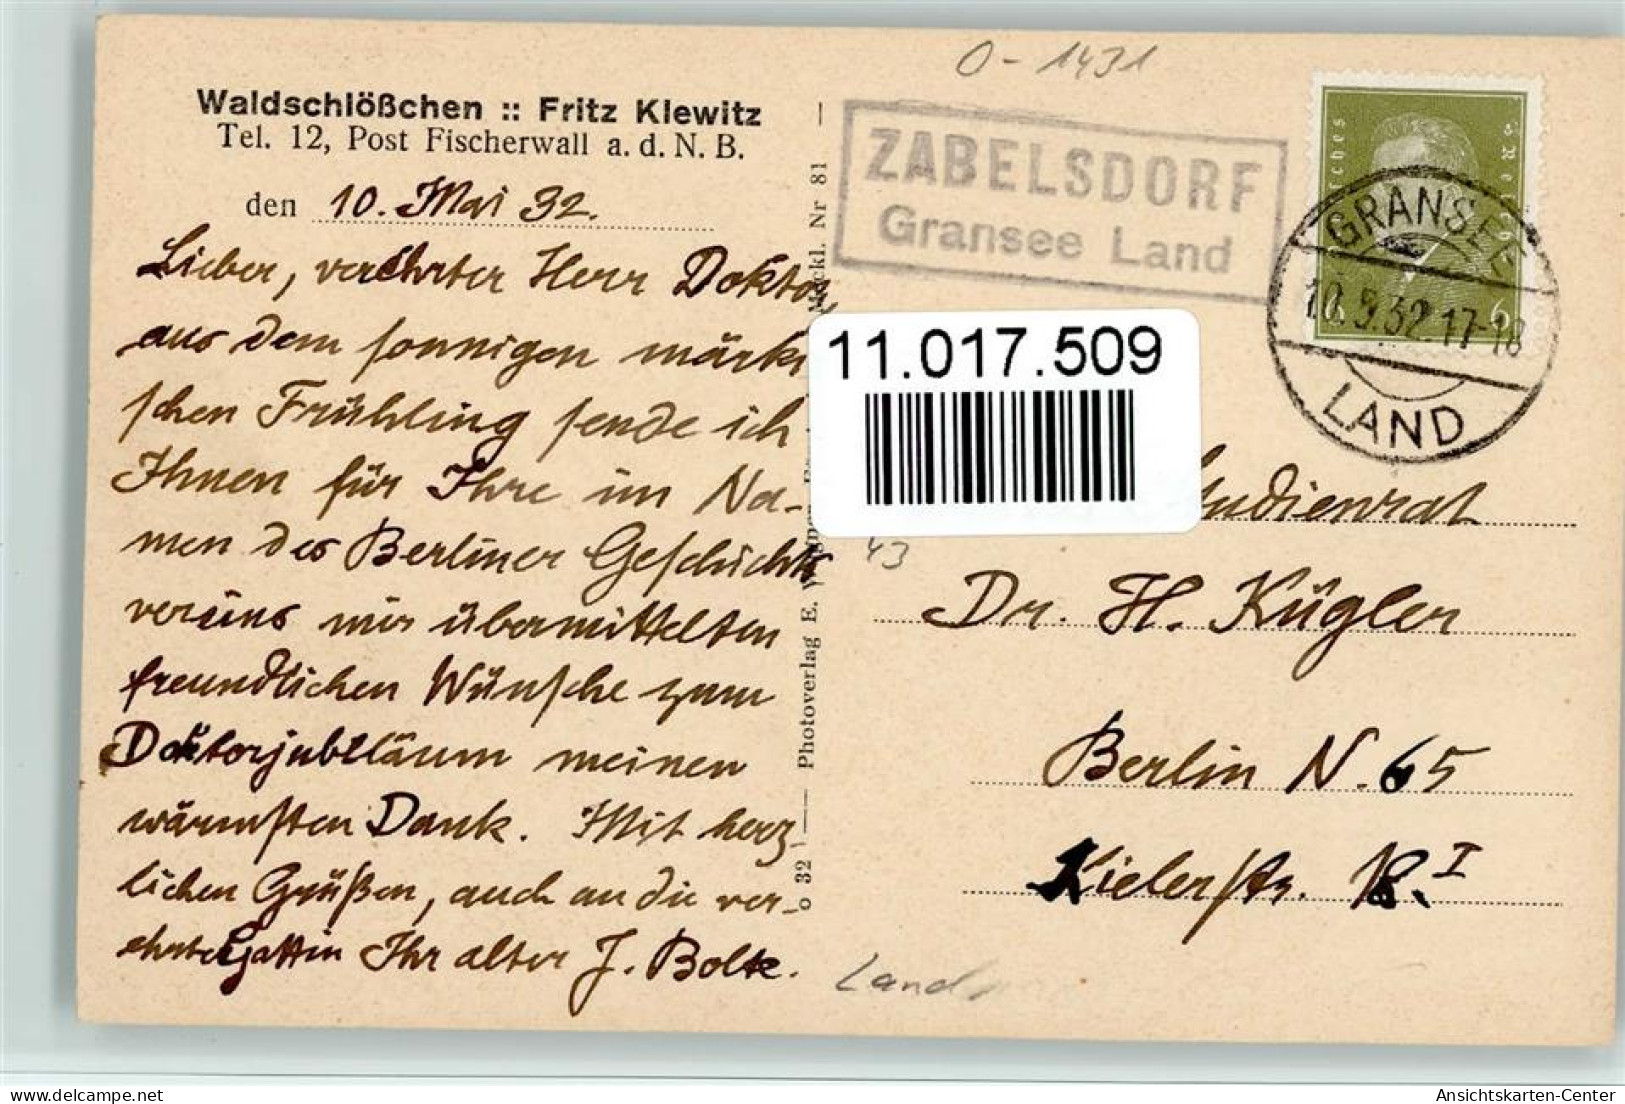 O-1431
Waldschlößchen :: Fritz Klewitz
Tel. 12, Post Fischerwall a. d. N. B.
den 10. Mai 32.
Lieber, verehrter Herr Doktor,
aus dem sonnigen märki
schen Frühling sende ich
Ihnen für Ihre im Na-
men des Berliner Geschichts
vereins mir übermittelten
freundlichen Wünsche zum
Doktorjubiläum meinen
wärmsten Dank. Mit herz-
lichen Grüßen, auch an die ver-
ehrte Gattin Ihr alter J. Bolte.
o 32 — Photoverlag E. Nr 81
ZABELSDORF
Gransee Land
GRANSEE
10.5.32.17-18
LAND
6
11.017.509
43
Studienrat
Dr. H. Kügler
Berlin N. 65
Kielerstr. I
Land
Ansichtskarten-Center